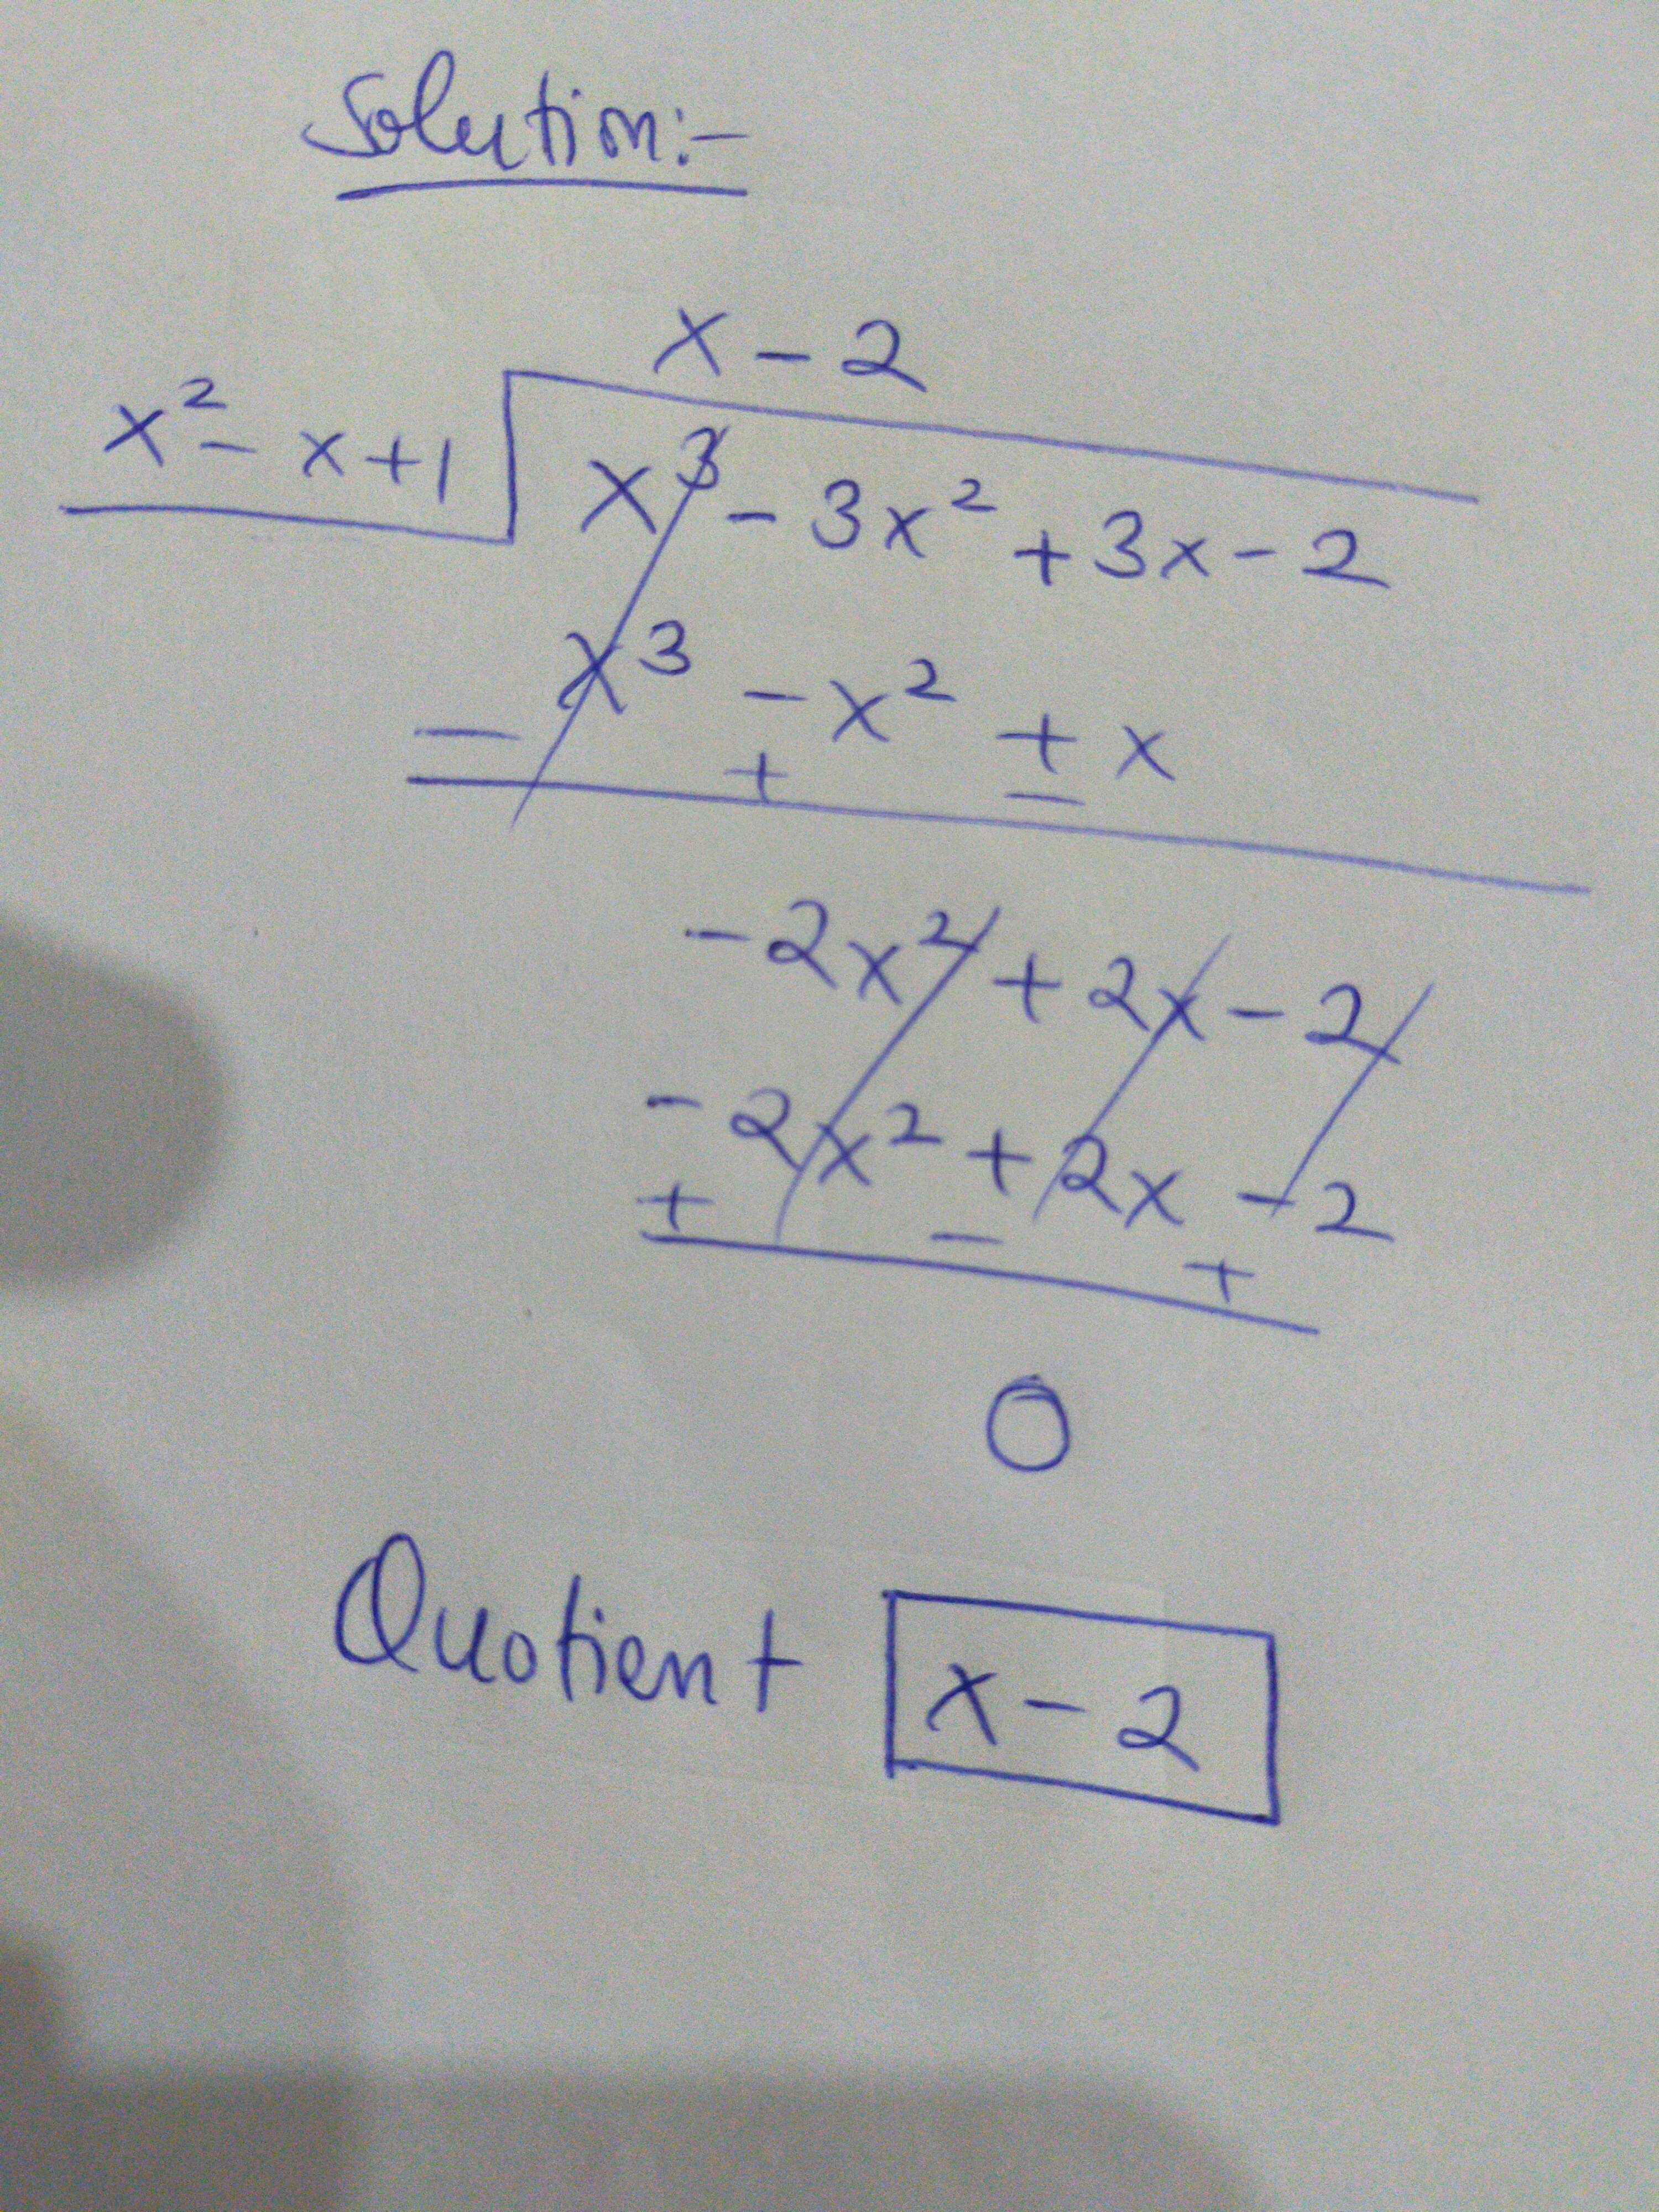 Solution:-
x - 2
x² - x + 1
x³ - 3x² + 3x - 2
x³ - x² + x
- + -
-2x² + 2x - 2
-2x² + 2x - 2
+ - +
0
Quotient x - 2